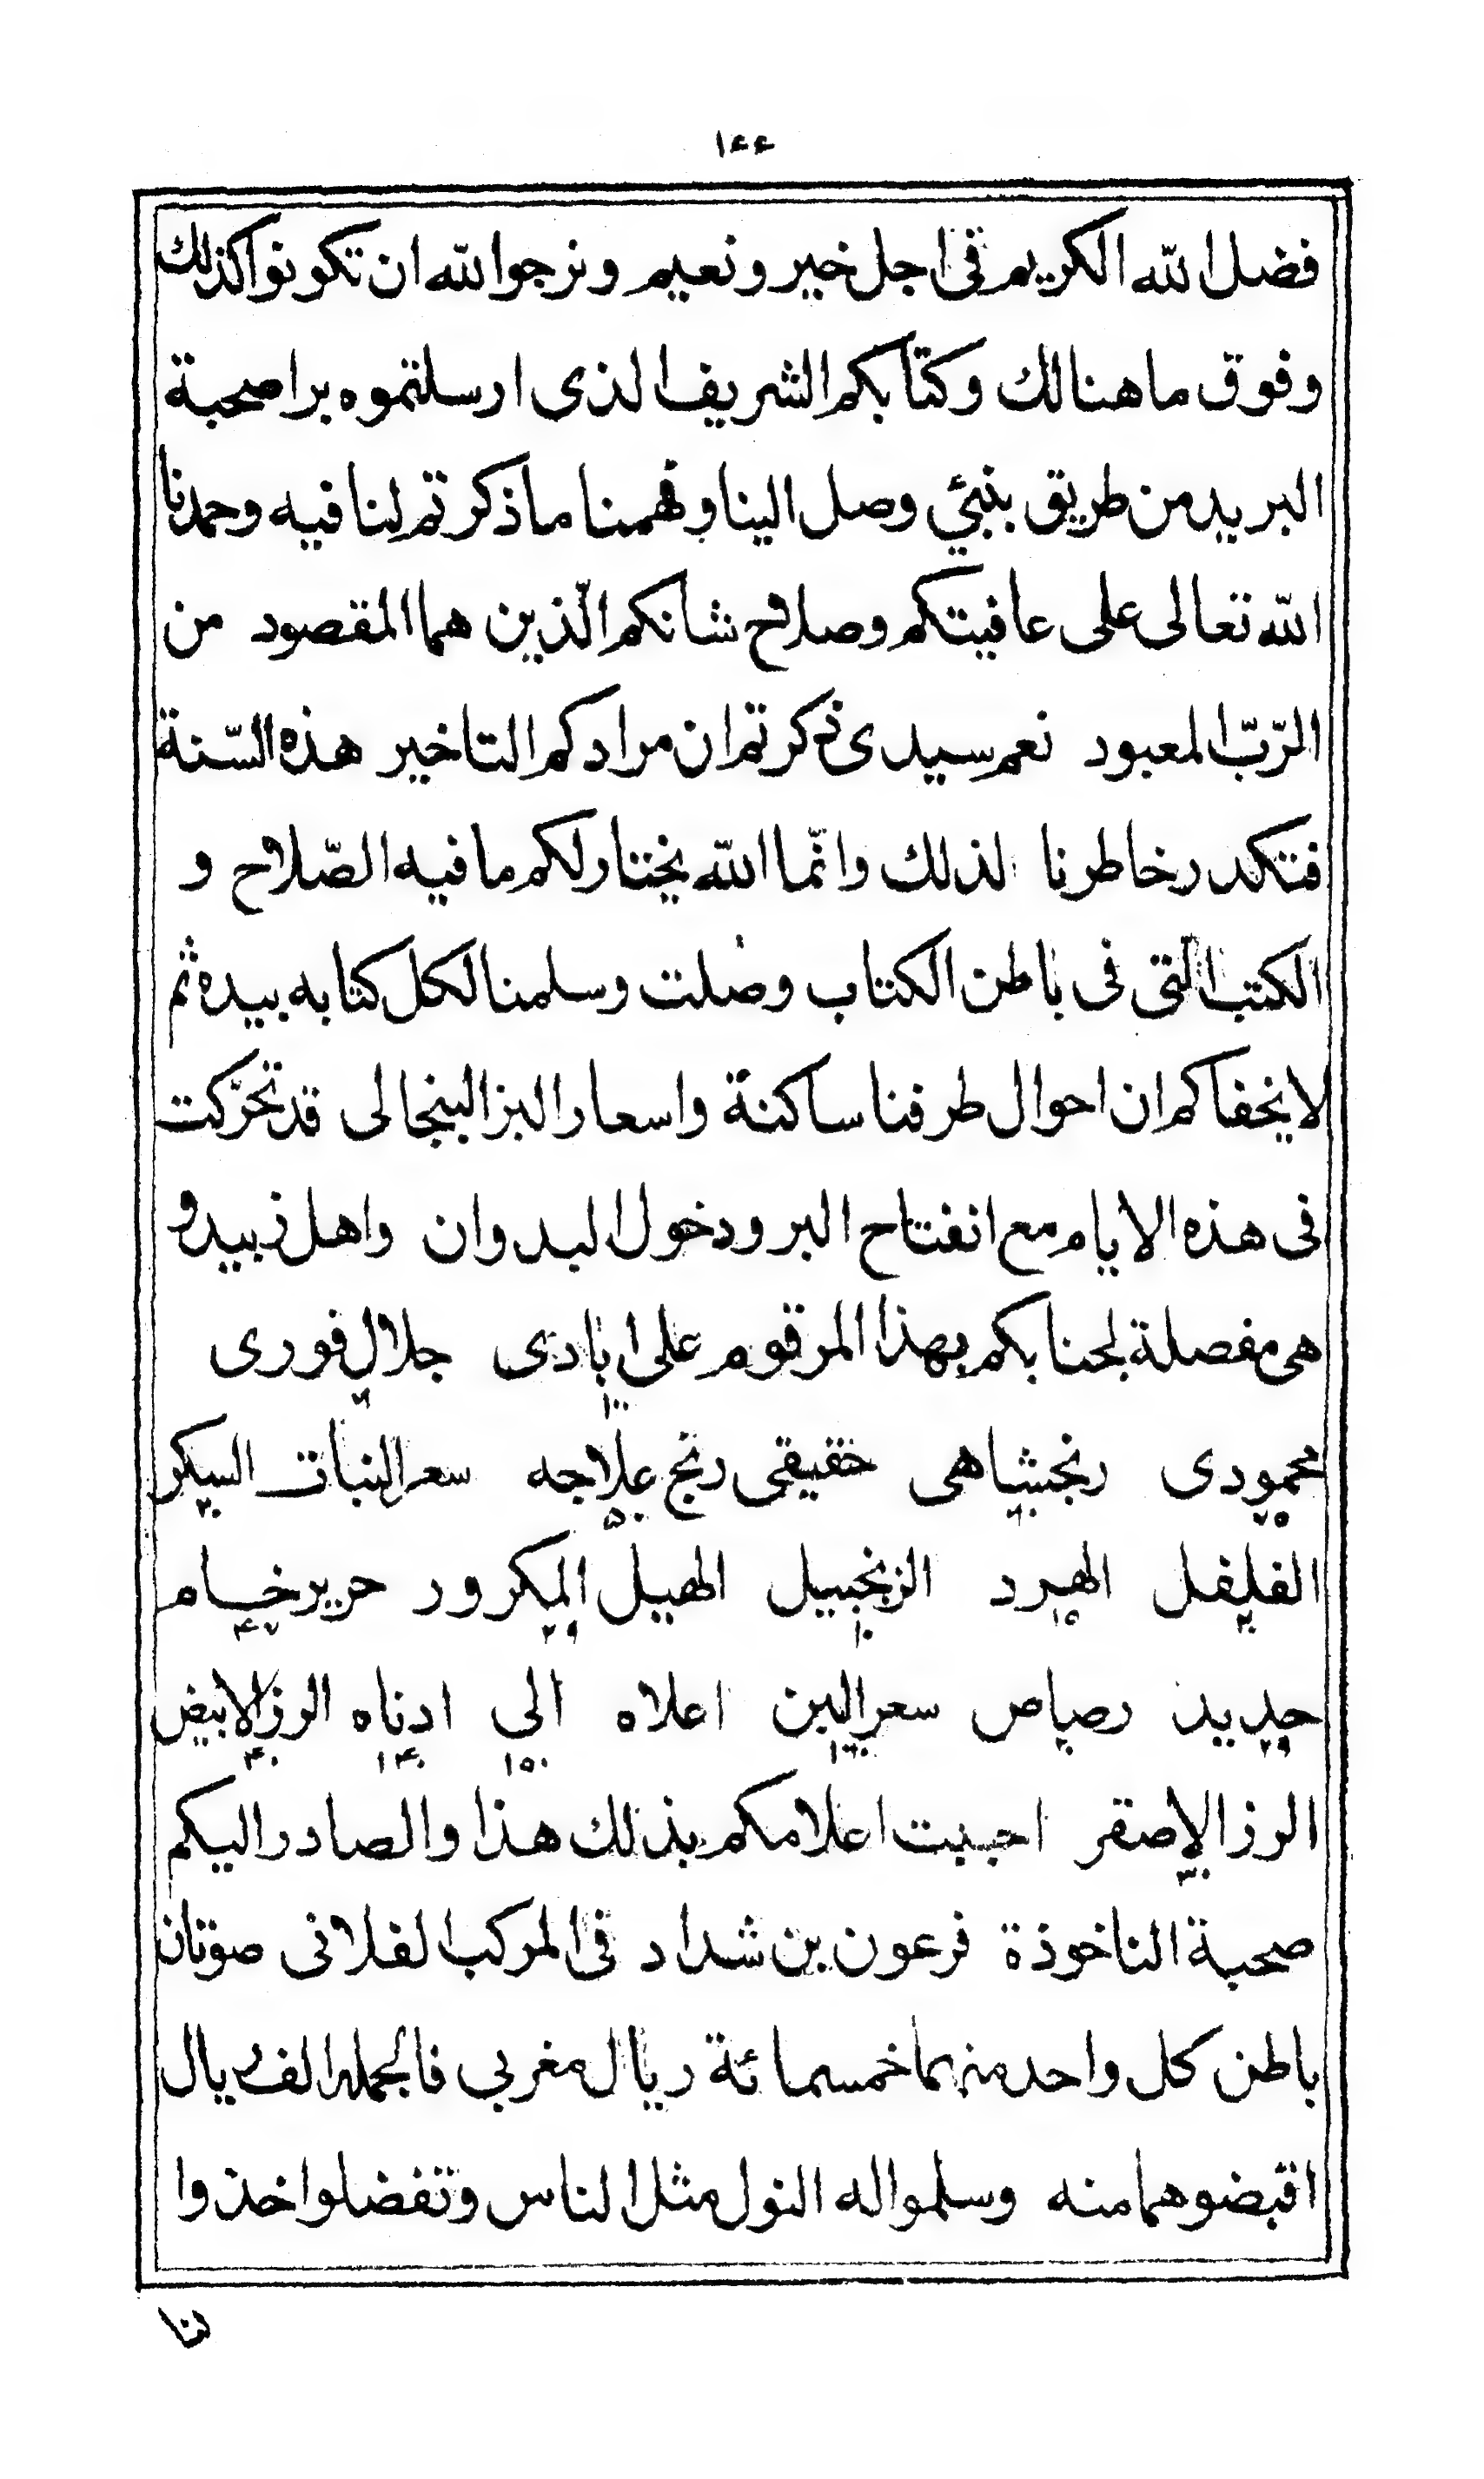 ۱۴۴
فضل الله الكريم فى اجل خير ونعيم ونرجوا لله ان تكونوا كذلك
وفوق ما هنالك وكتابكم الشريف الذى ارسلتموه برا صحبة
البريد من طريق بنبئي وصل الينا وفهمنا ما ذكرتم لنا فيه وحمدنا
الله تعالى على عافيتكم وصلاح شانكم الّذين هما المقصود من
الرّبّ المعبود نعم سيدى ذكرتم ان مرادكم التاخير هذه السّنة
فتكدر خاطرنا لذلك وانّما الله يختار لكم ما فيه الصّلاح و
الكتب الّتى فى باطن الكتاب وصلت وسلمنا لكل كتابه بيده ثم
لا يخفاكم ان احوال طرفنا ساكنة واسعار البز البنجالى قد تحرّكت
فى هذه الايام مع انفتاح البر ودخول البدوان واهل زبيد و
هى مفصلة لجنابكم بهذا المرقوم على ابادى جلال فورى
۱۰۰
محمودى رنجشاهى خقيقى رنج علاجه سعر النبات السكر
۷۵ ۵۰ ۳۰
الفلفل الهرد الزنجبيل الهيل المكرور حرير خام
۲۰ ۱۵ ۱۰ ۲۹ ۴۷
حديد رصاص سعر البن اعلاه الى ادناه الرز الابيض
۲۹ ۲۰ ۱۶۰ ۱۵۰ ۱۴۰ ۴۰
الرز الاصقر اجبت اعلامكم بذلك هذا والصادر اليكم
۳۰
صحبة الناخوذة فرعون بن شداد فى المركب الفلانى صوتان
باطن كل واحد منهما خمسمائة ريال مغربي فالجملة الف ريال
اقبضوهما منه وسلموا له النول مثل الناس وتفضلوا خذوا
لنا